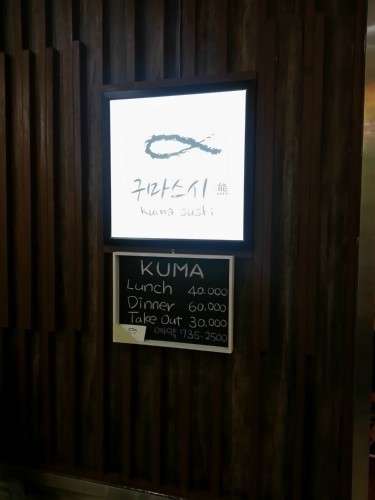 구마스시 熊
kuma sushi
KUMA
Lunch 40.000
Dinner 60.000
Take Out 30.000
예약 735-2500